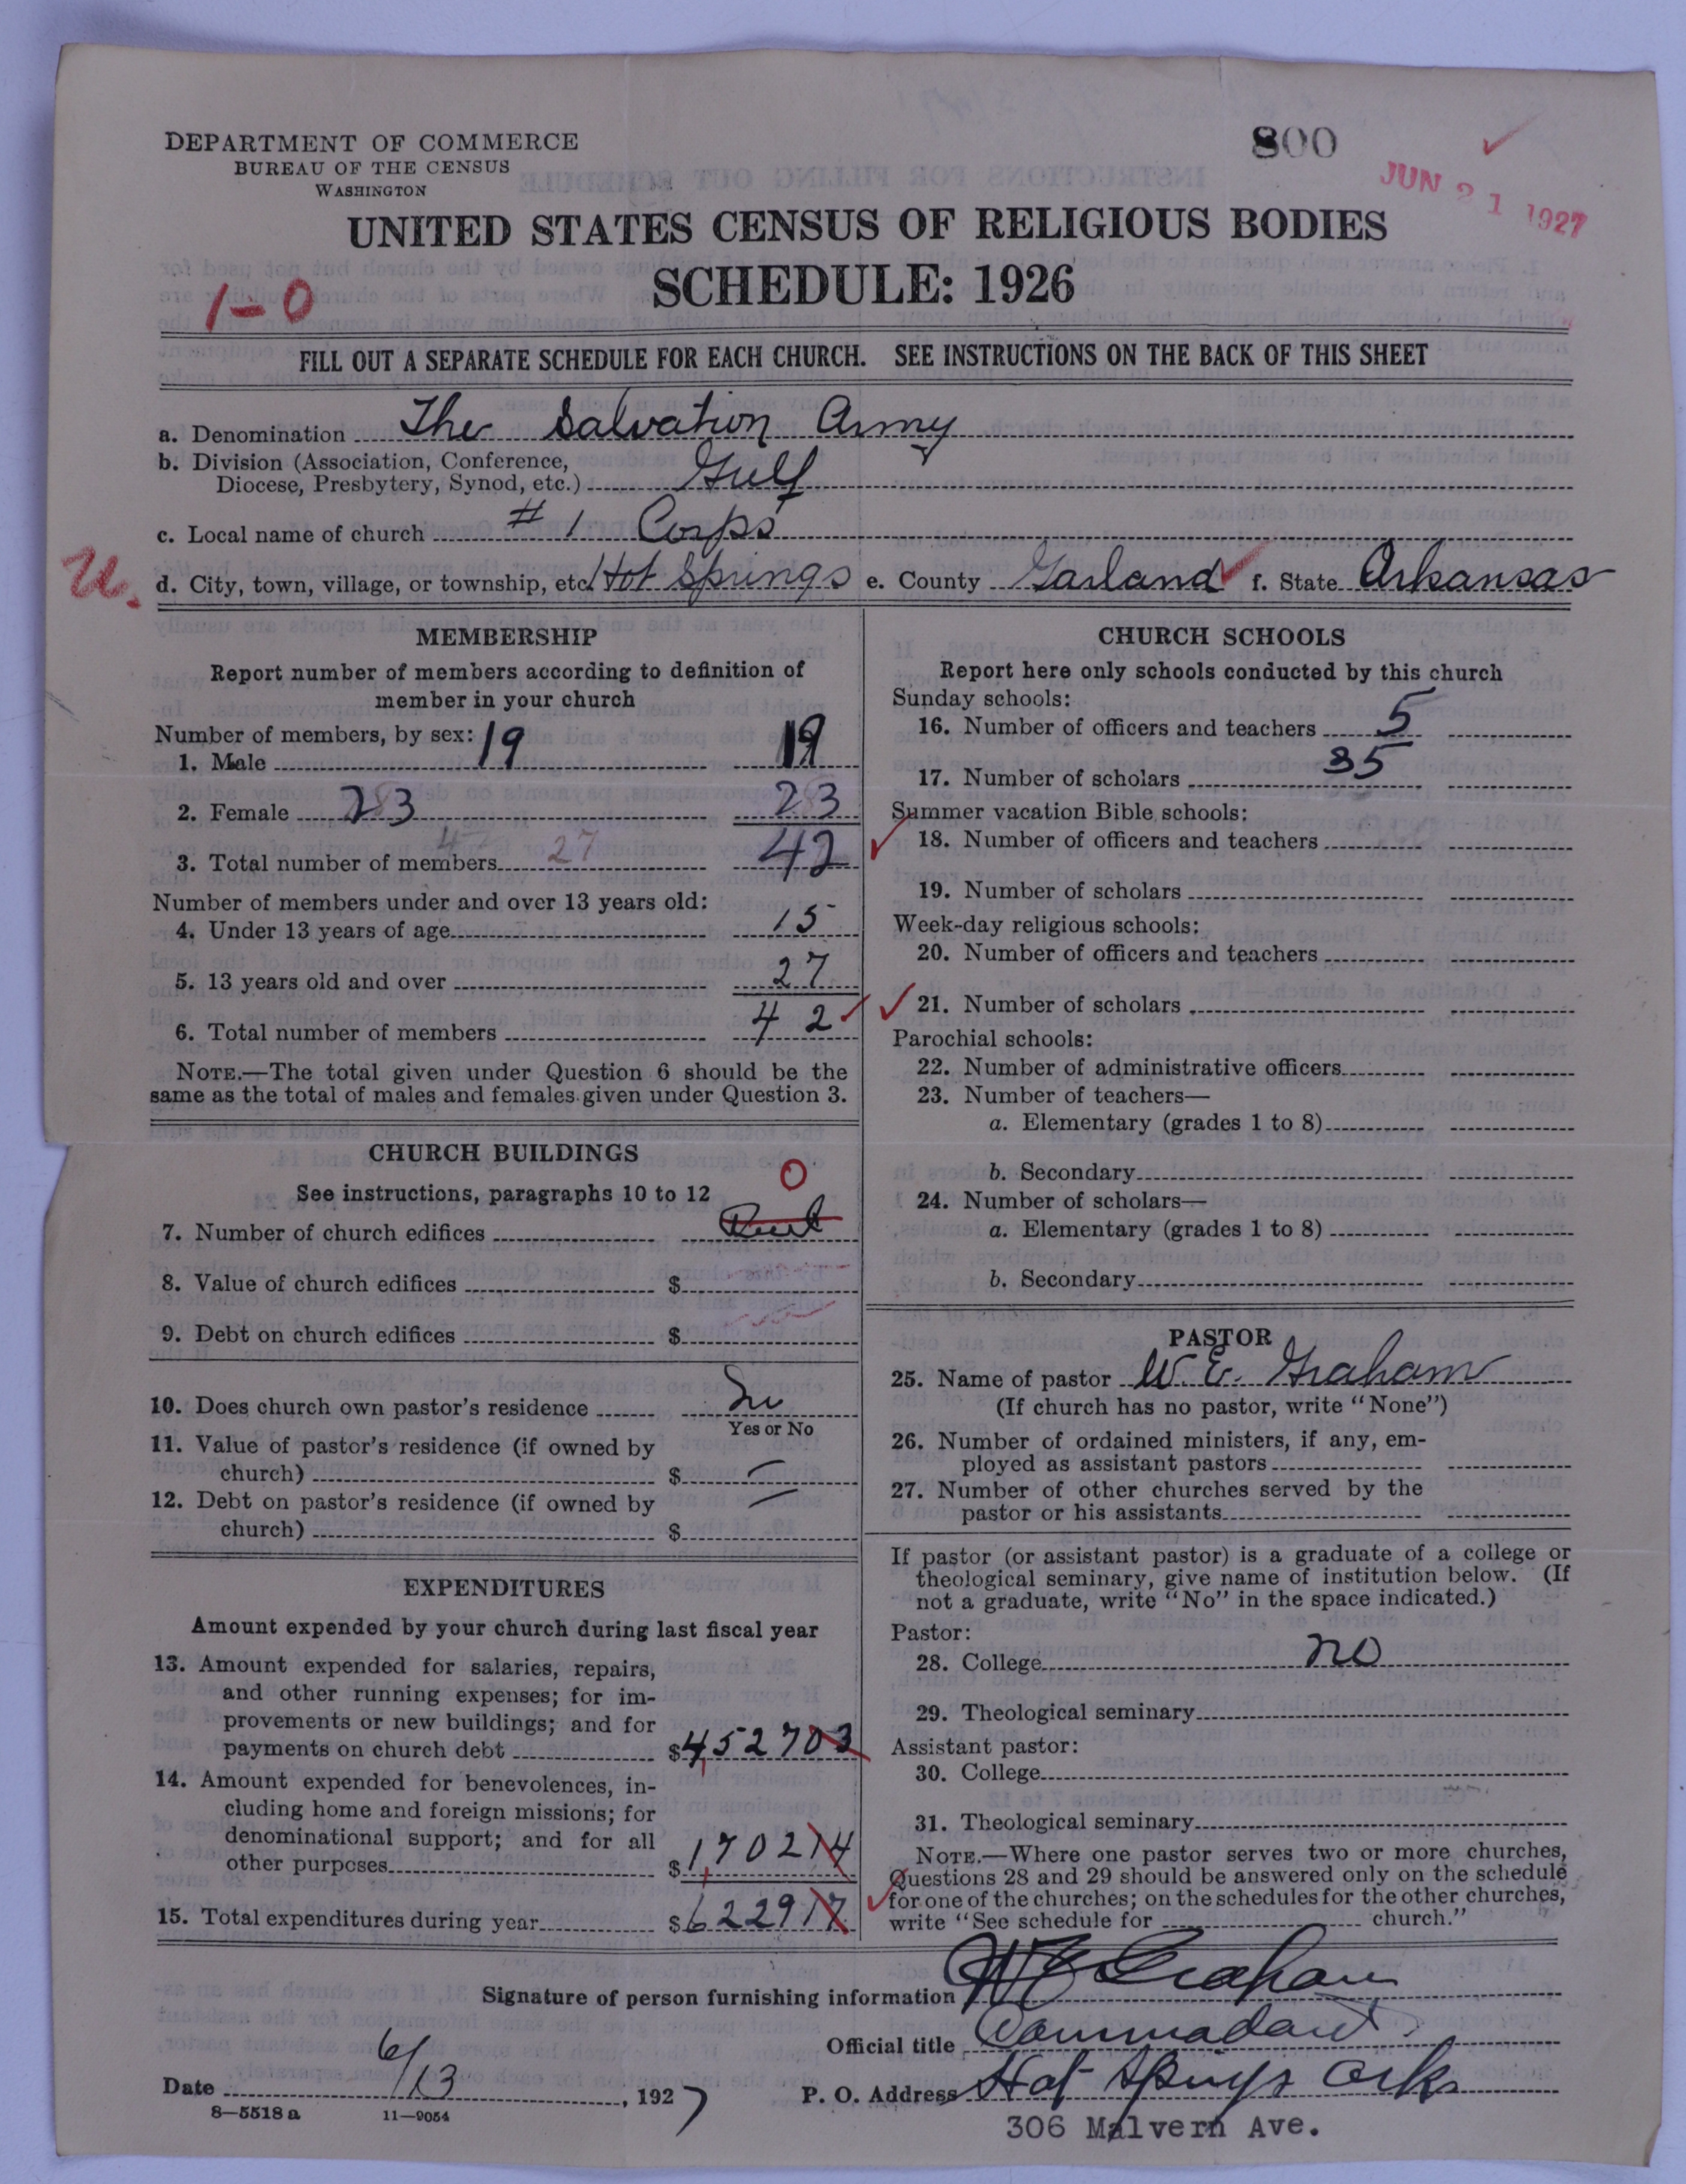 DEPARTMENT OF COMMERCE
BUREAU OF THE CENSUS
WASHINGTON
800
JUN 21 1927
UNITED STATES CENSUS OF RELIGIOUS BODIES
SCHEDULE: 1926
1-0
FILL OUT A SEPARATE SCHEDULE FOR EACH CHURCH. SEE INSTRUCTIONS ON THE BACK OF THIS SHEET
a. Denomination The Salvation Army
b. Division (Association, Conference,
Diocese, Presbytery, Synod, etc.) Gulf
c. Local name of church #1 Corps
U.
d. City, town, village, or township, etc. Hot Springs e. County Garland f. State Arkansas
MEMBERSHIP
Report number of members according to definition of
member in your church
Number of members, by sex:
1. Male 19 19
2. Female 23 23
3. Total number of members 27 42
Number of members under and over 13 years old:
4. Under 13 years of age 15
5. 13 years old and over 27
6. Total number of members 42
NOTE.—The total given under Question 6 should be the
same as the total of males and females given under Question 3.
CHURCH BUILDINGS
See instructions, paragraphs 10 to 12
0
7. Number of church edifices Rent
8. Value of church edifices $
9. Debt on church edifices $
10. Does church own pastor's residence No
Yes or No
11. Value of pastor's residence (if owned by
church) $ —
12. Debt on pastor's residence (if owned by
church) $ —
EXPENDITURES
Amount expended by your church during last fiscal year
13. Amount expended for salaries, repairs,
and other running expenses; for im-
provements or new buildings; and for
payments on church debt $4,52703
14. Amount expended for benevolences, in-
cluding home and foreign missions; for
denominational support; and for all
other purposes $1,70214
15. Total expenditures during year $622917
CHURCH SCHOOLS
Report here only schools conducted by this church
Sunday schools:
16. Number of officers and teachers 5
17. Number of scholars 35
Summer vacation Bible schools:
18. Number of officers and teachers
19. Number of scholars
Week-day religious schools:
20. Number of officers and teachers
21. Number of scholars
Parochial schools:
22. Number of administrative officers
23. Number of teachers—
a. Elementary (grades 1 to 8)
b. Secondary
24. Number of scholars—
a. Elementary (grades 1 to 8)
b. Secondary
PASTOR
25. Name of pastor W. E. Graham
(If church has no pastor, write "None")
26. Number of ordained ministers, if any, em-
ployed as assistant pastors
27. Number of other churches served by the
pastor or his assistants
If pastor (or assistant pastor) is a graduate of a college or
theological seminary, give name of institution below. (If
not a graduate, write "No" in the space indicated.)
Pastor:
28. College no
29. Theological seminary
Assistant pastor:
30. College
31. Theological seminary
NOTE.—Where one pastor serves two or more churches,
Questions 28 and 29 should be answered only on the schedule
for one of the churches; on the schedules for the other churches,
write "See schedule for church."
Signature of person furnishing information W E Graham
Official title Commadant
Date 6/13, 1927
P. O. Address Hot Springs Ark
8-5518 a 11-9054
306 Malvern Ave.